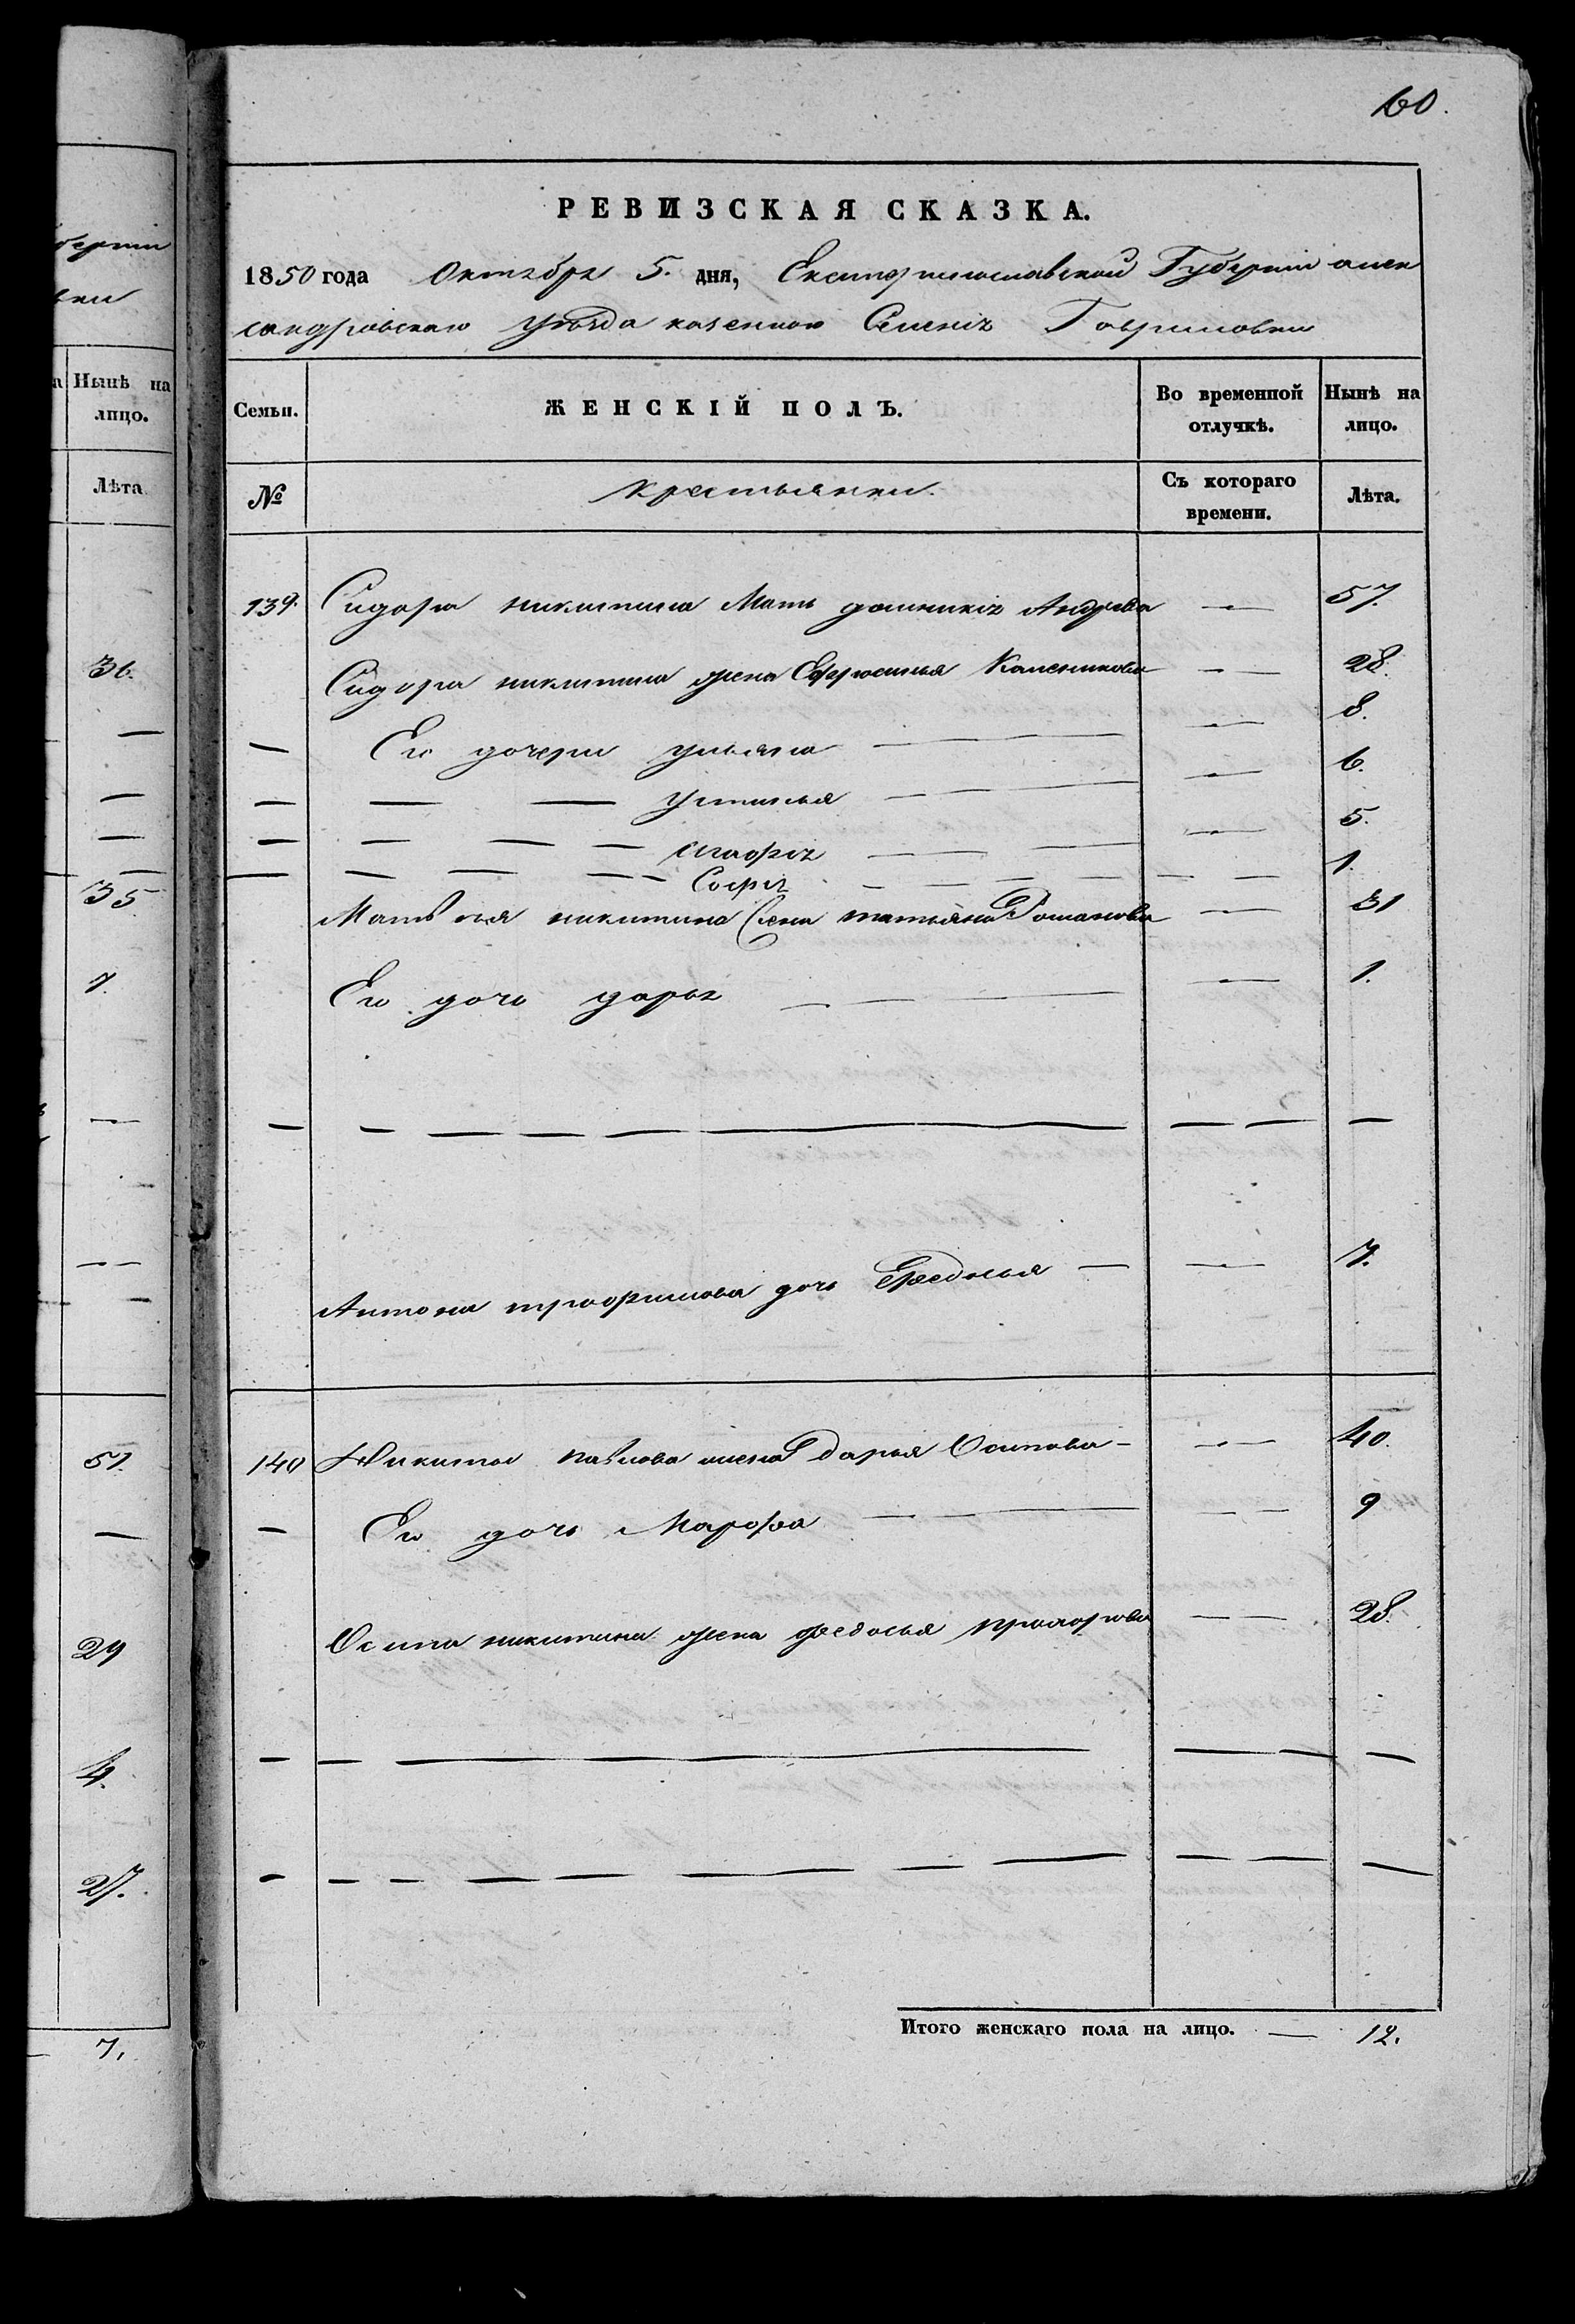 60.
РЕВИЗСКАЯ СКАЗКА.
1850 года Октября 5. дня, Екатеринославской Губерніи Алек
сандровскаго уѣзда казенного Селенія Гавриловки
Семьи. ЖЕНСКІЙ ПОЛЪ. Во временной отлучкѣ. Нынѣ на лицо.
№ Крестьянки. Съ котораго времени. Лѣта.
139. Сидора никитина Мать домникія Андреева — 57.
Сидора никитина жена Ефросинья Каленикова — 28.
— Его дочери ульяна — 8.
— — — устинья — 6.
— — — — марія — 5.
— — — — Софія — 1.
Матвея никитина жена татьяна Романова — 31
Его дочь дарья — 1.
Антона трофимова дочь Федосья — 7.
140 Никиты павлова жена дарья Осипова — 40.
— Его дочь Марфа — 9
Осипа никитина жена федосья прохорова — 28.
Итого женскаго пола на лицо. — 12.
берніи
вки
Нынѣ на
лицо.
Лѣта
36.
35
1.
51.
29
4.
27.
7.